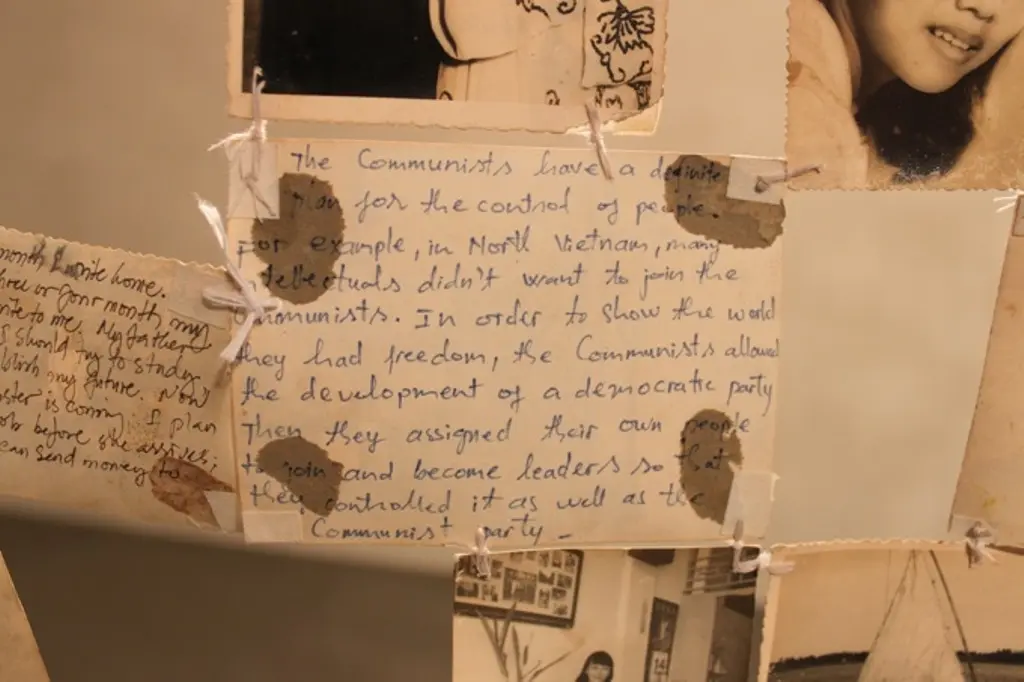 The Communists have a definite
plan for the control of people.
For example, in North Vietnam, many
intellectuals didn't want to join the
Communists. In order to show the world
they had freedom, the Communists allowed
the development of a democratic party
Then they assigned their own people
to join and become leaders so that
they controlled it as well as the
Communist party -
month I write home.
three or four month my
write to me. My father
I should try to study
my future. Now
is coming. I plan
job before she arrives;
can send money to
14